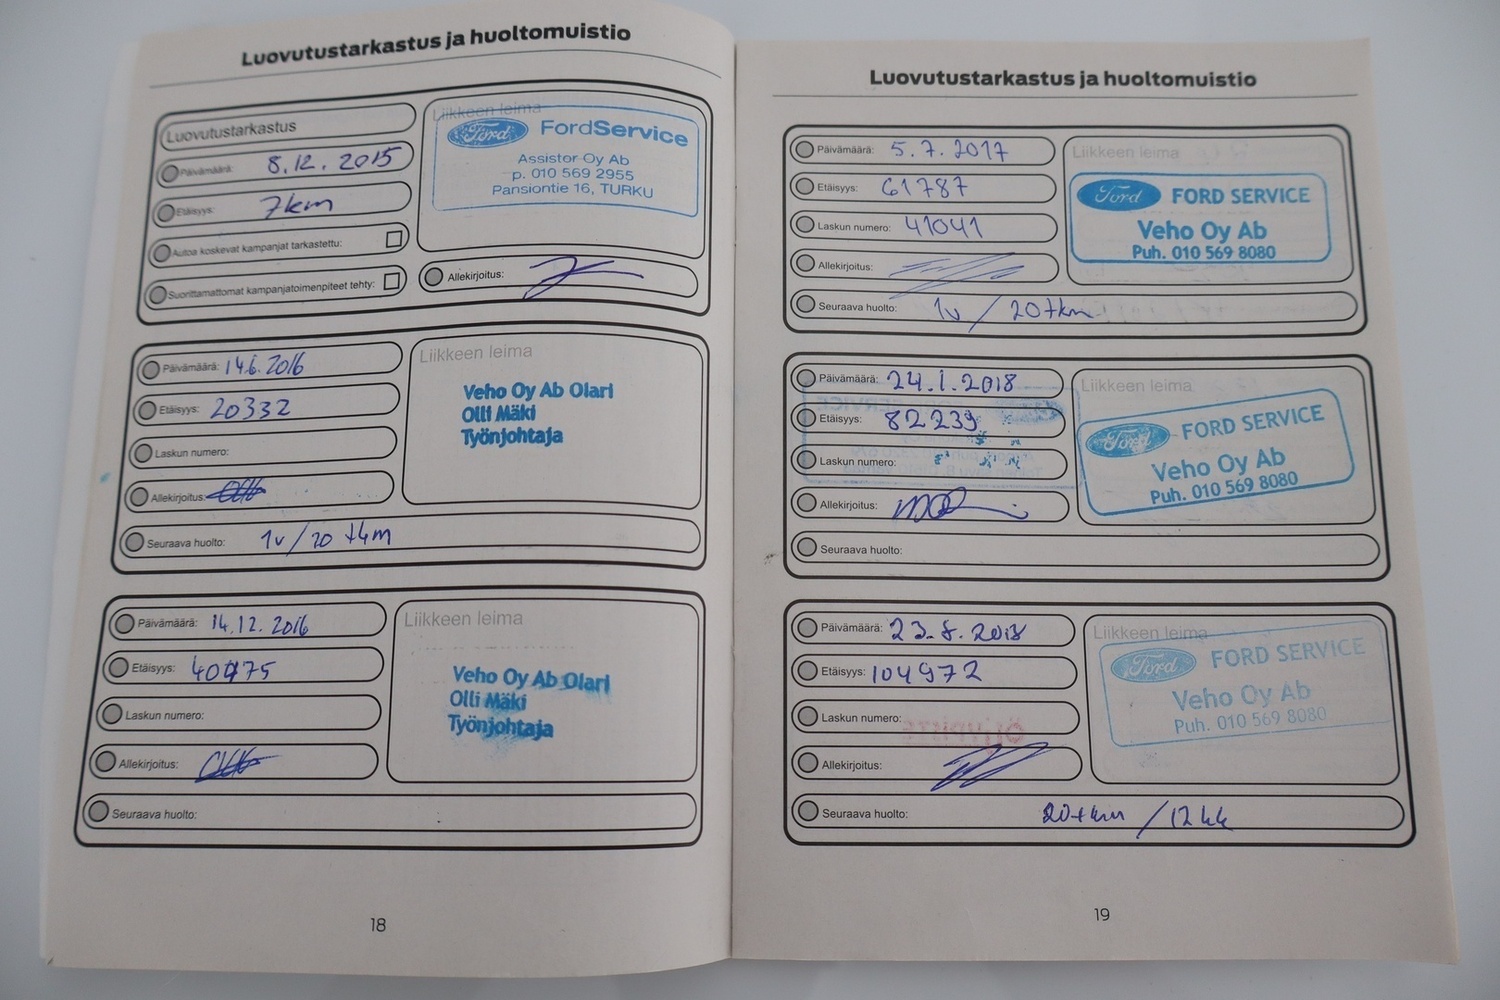 Luovutustarkastus ja huoltomuistio
Luovutustarkastus
Päivämäärä: 8.12.2015
Etäisyys: 7km
Autoa koskevat kampanjat tarkastettu:
Suorittamattomat kampanjatoimenpiteet tehty:
Liikkeen leima
Ford FordService
Assistor Oy Ab
p. 010 569 2955
Pansiontie 16, TURKU
Allekirjoitus:
Päivämäärä: 14.6.2016
Etäisyys: 20332
Laskun numero:
Allekirjoitus:
Liikkeen leima
Veho Oy Ab Olari
Olli Mäki
Työnjohtaja
Seuraava huolto: 1v / 20 tkm
Päivämäärä: 14.12.2016
Etäisyys: 40475
Laskun numero:
Allekirjoitus:
Liikkeen leima
Veho Oy Ab Olari
Olli Mäki
Työnjohtaja
Seuraava huolto:
18
Luovutustarkastus ja huoltomuistio
Päivämäärä: 5.7.2017
Etäisyys: 61787
Laskun numero: 41041
Allekirjoitus:
Liikkeen leima
Ford FORD SERVICE
Veho Oy Ab
Puh. 010 569 8080
Seuraava huolto: 1v / 20tkm
Päivämäärä: 24.1.2018
Etäisyys: 82239
Laskun numero:
Allekirjoitus:
Liikkeen leima
Ford FORD SERVICE
Veho Oy Ab
Puh. 010 569 8080
Seuraava huolto:
Päivämäärä: 23.8.2018
Etäisyys: 104972
Laskun numero:
Allekirjoitus:
Liikkeen leima
Ford FORD SERVICE
Veho Oy Ab
Puh. 010 569 8080
Seuraava huolto: 20tkm / 12kk
19